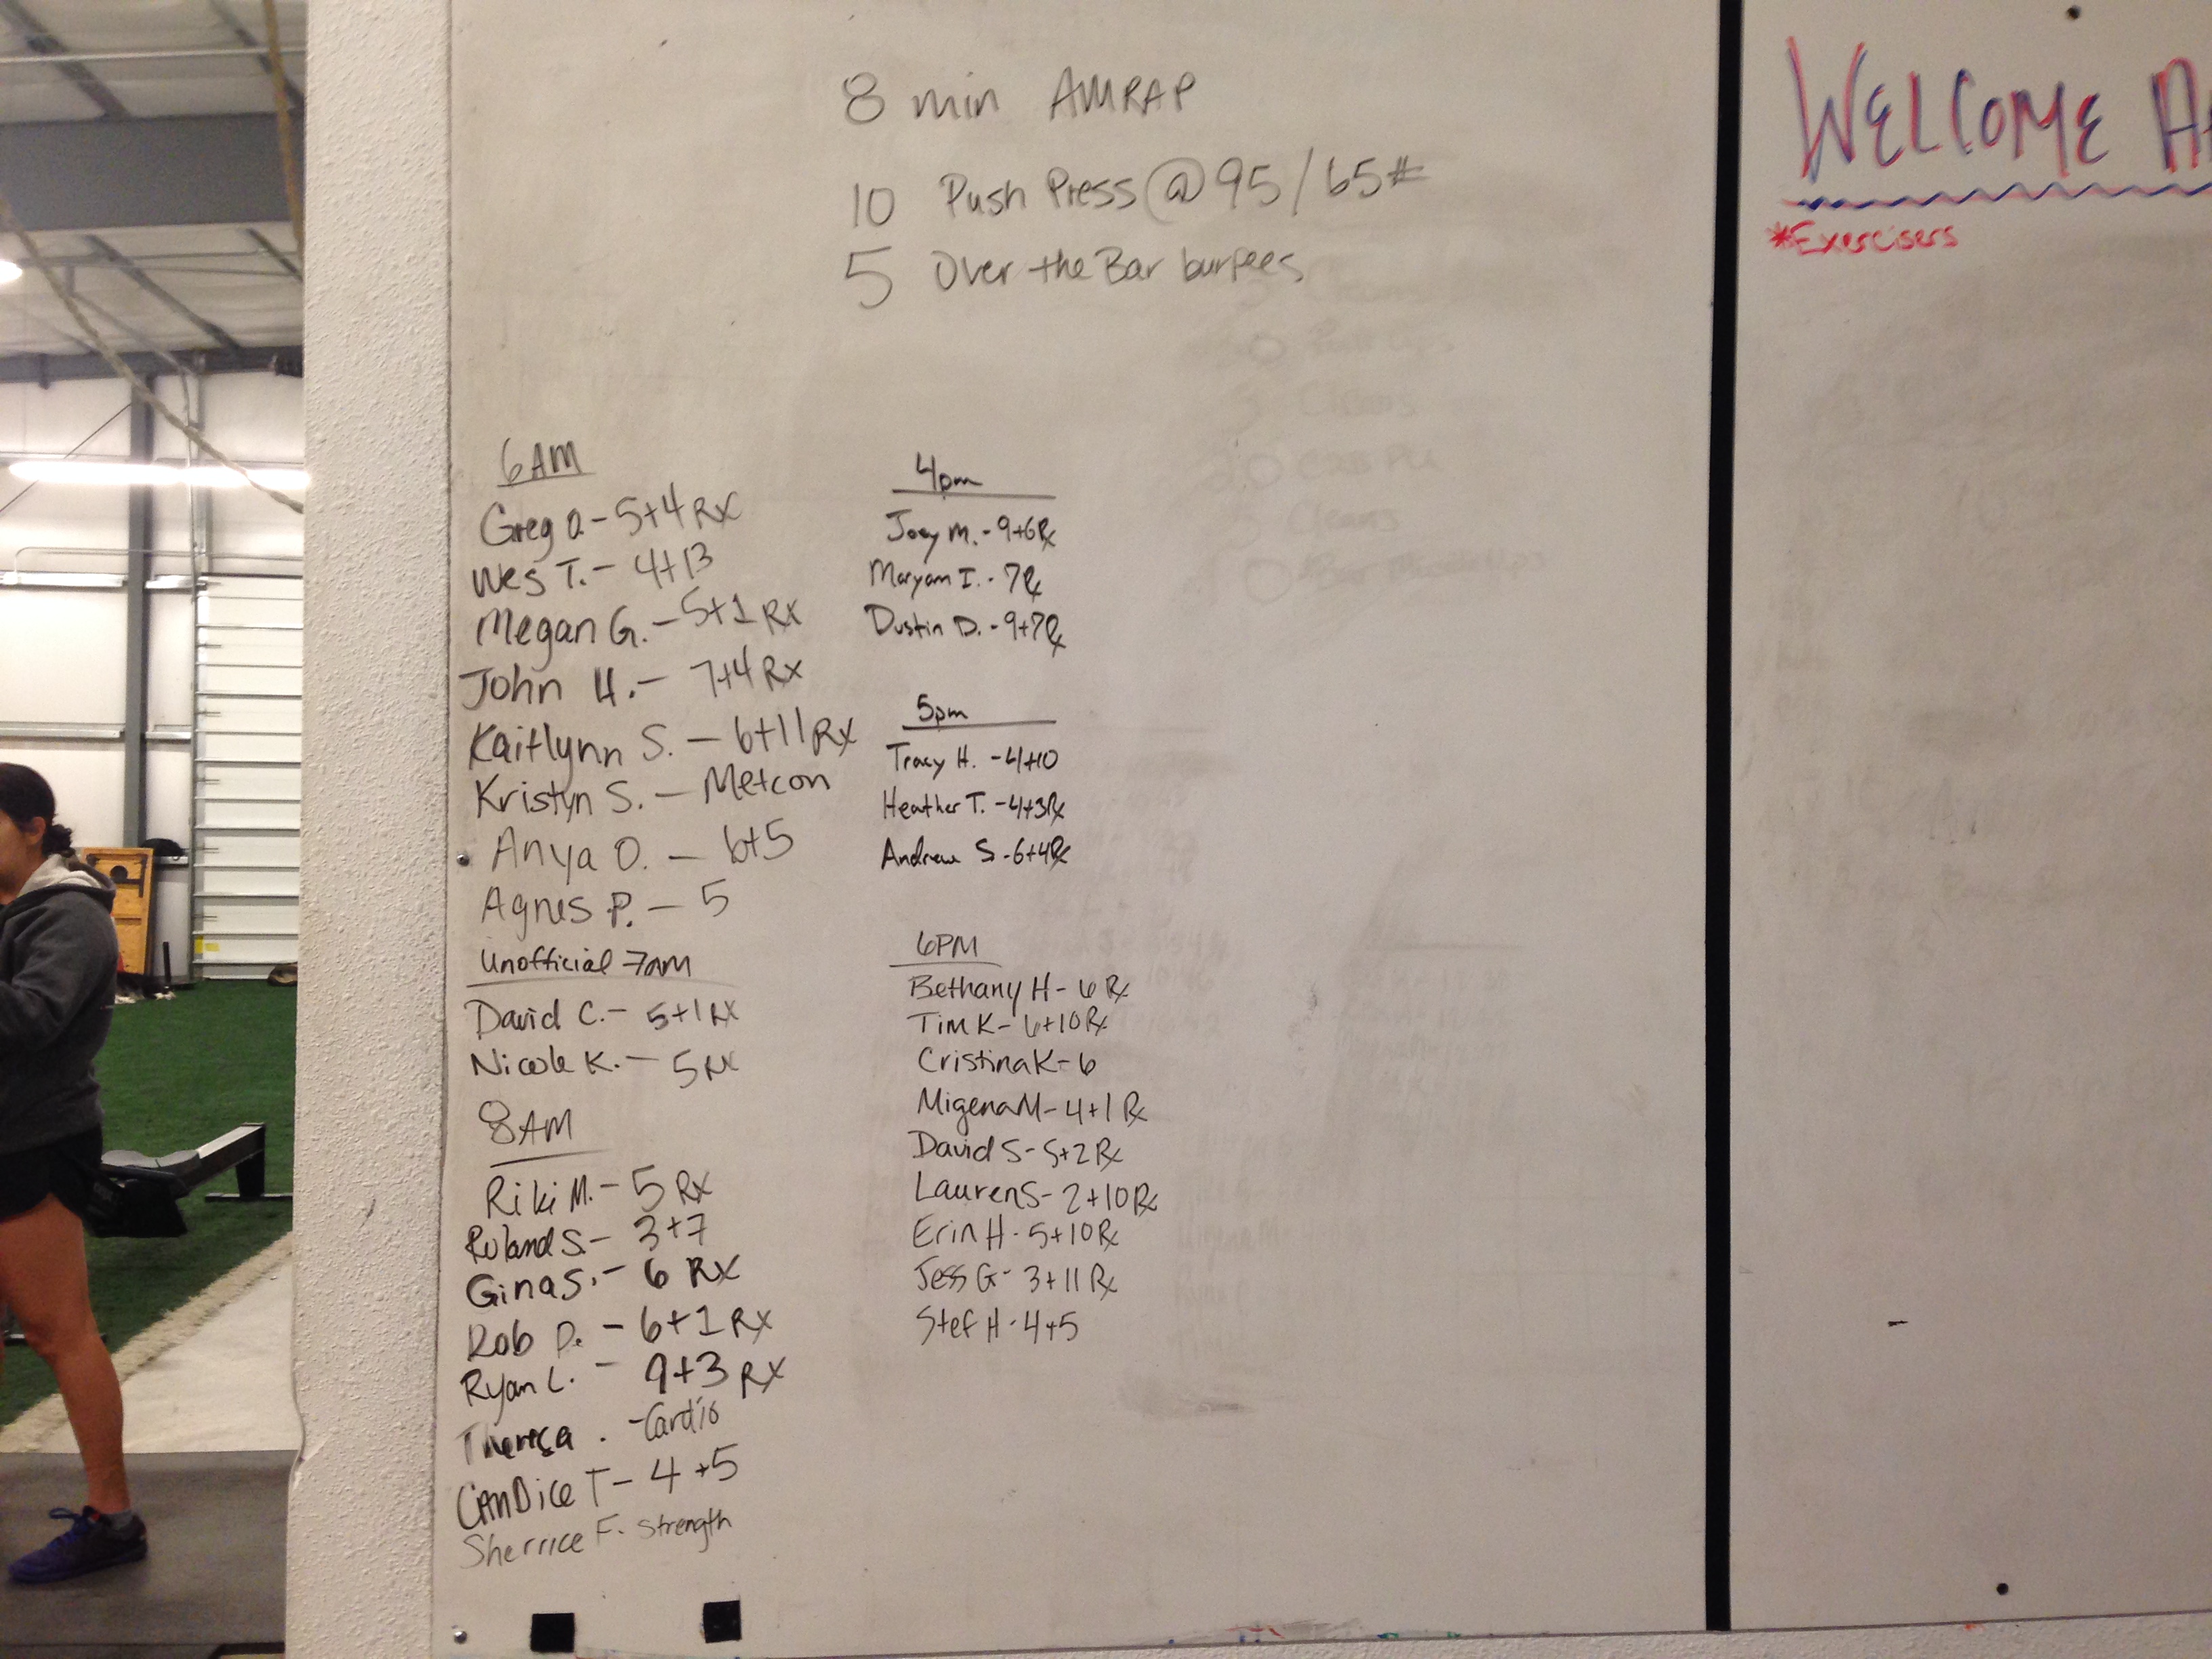 8 min AMRAP
10 Push Press @ 95/65#
5 Over the Bar burpees
6AM
Greg O. - 5+4 Rx
Wes T. - 4+13
Megan G. - 5+1 Rx
John H. - 7+4 Rx
Kaitlynn S. - 6+11 Rx
Kristyn S. - Metcon
Anya O. - 6+5
Agnes P. - 5
Unofficial 7AM
David C. - 5+1 Rx
Nicole K. - 5 Rx
8AM
Riki M. - 5 Rx
Roland S. - 3+7
Gina S. - 6 Rx
Rob D. - 6+1 Rx
Ryan L. - 9+3 Rx
Theresa . - Cardio
CANDice T - 4 +5
Sherrice F. Strength
4pm
Joey M. - 9+6 Rx
Maryam I. - 7 Rx
Dustin D. - 9+7 Rx
5pm
Tracy H. - 4+10
Heather T. - 4+3 Rx
Andrew S - 6+4 Rx
6PM
Bethany H - 6 Rx
Tim K - 6+10 Rx
Cristina K - 6
Migena M - 4+1 Rx
David S - 5+2 Rx
Lauren S - 2+10 Rx
Erin H - 5+10 Rx
Jess G - 3+11 Rx
Stef H - 4+5
WELCOME
*Exercisers